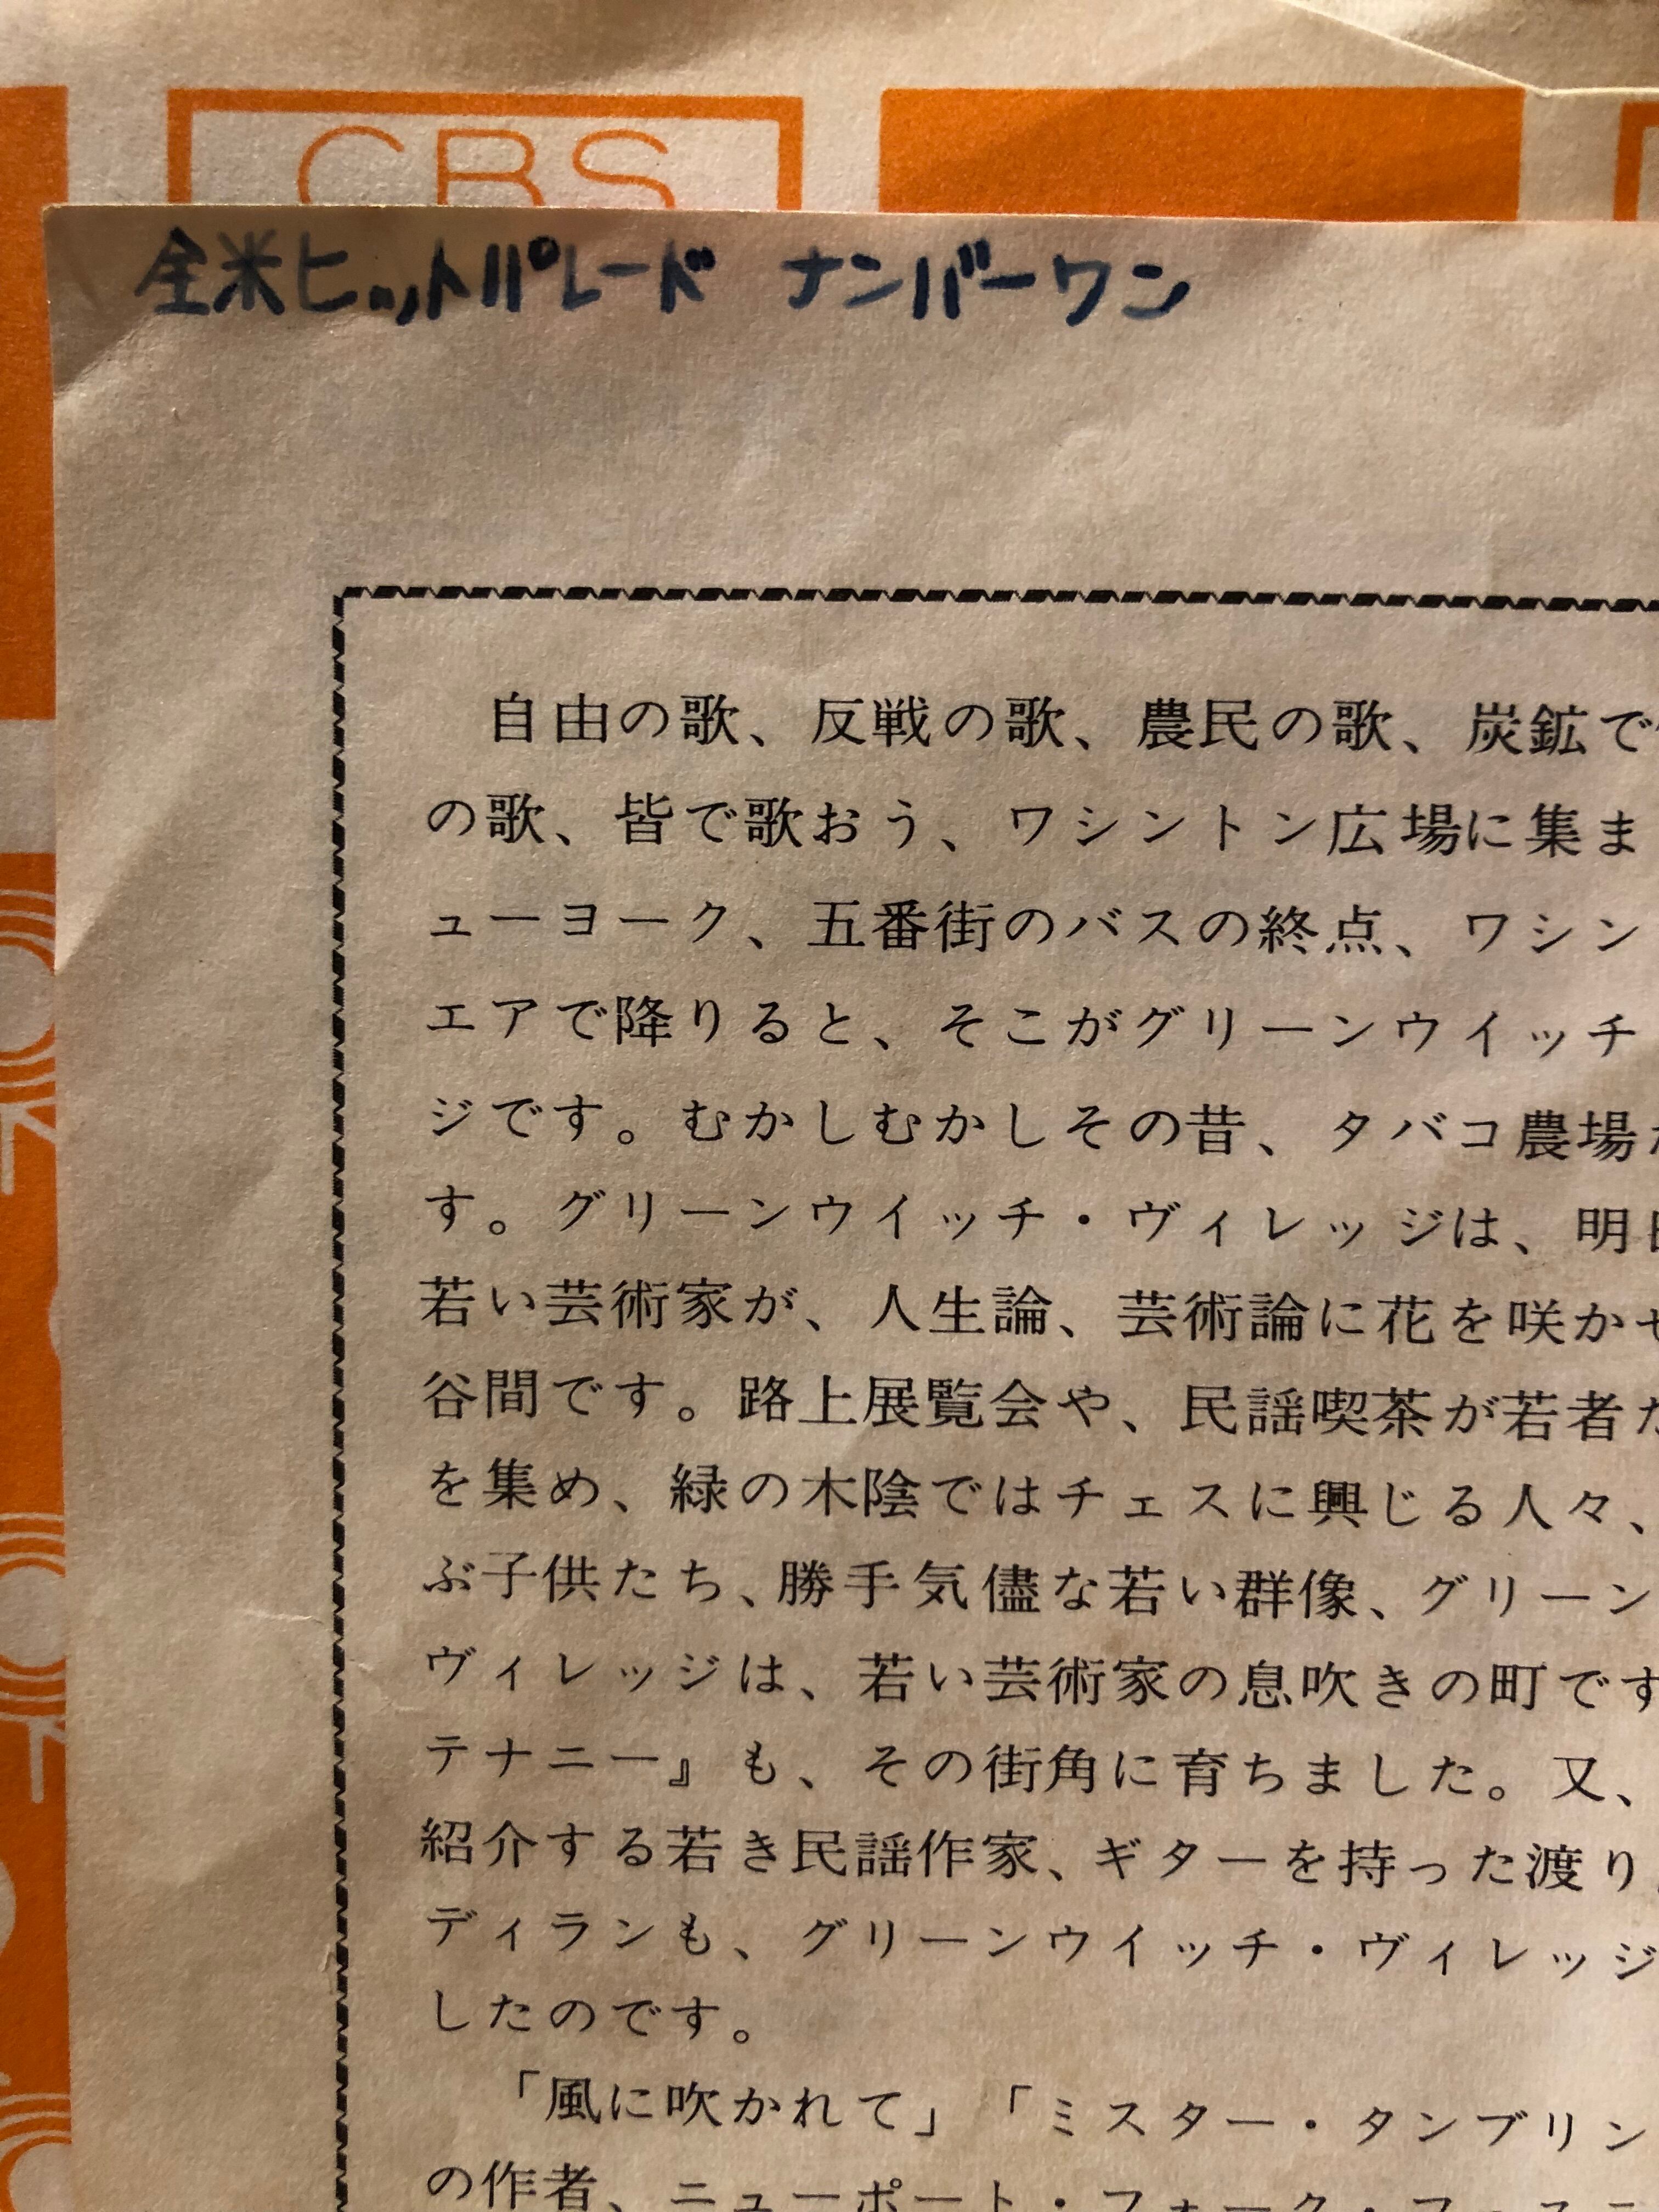 CBS
全米ヒットパレード ナンバーワン
自由の歌、反戦の歌、農民の歌、炭鉱で
の歌、皆で歌おう、ワシントン広場に集ま
ューヨーク、五番街のバスの終点、ワシン
エアで降りると、そこがグリーンウイッチ
ジです。むかしむかしその昔、タバコ農場
す。グリーンウイッチ・ヴィレッジは、明
若い芸術家が、人生論、芸術論に花を咲かせ
谷間です。路上展覧会や、民謡喫茶が若者
を集め、緑の木陰ではチェスに興じる人々、
ぶ子供たち、勝手気儘な若い群像、グリーン
ヴィレッジは、若い芸術家の息吹きの町です
テナニー』も、その街角に育ちました。又、
紹介する若き民謡作家、ギターを持った渡り
ディランも、グリーンウイッチ・ヴィレッジ
したのです。
「風に吹かれて」「ミスター・タンブリン
の作者、ニューポート・フォーク・フェス